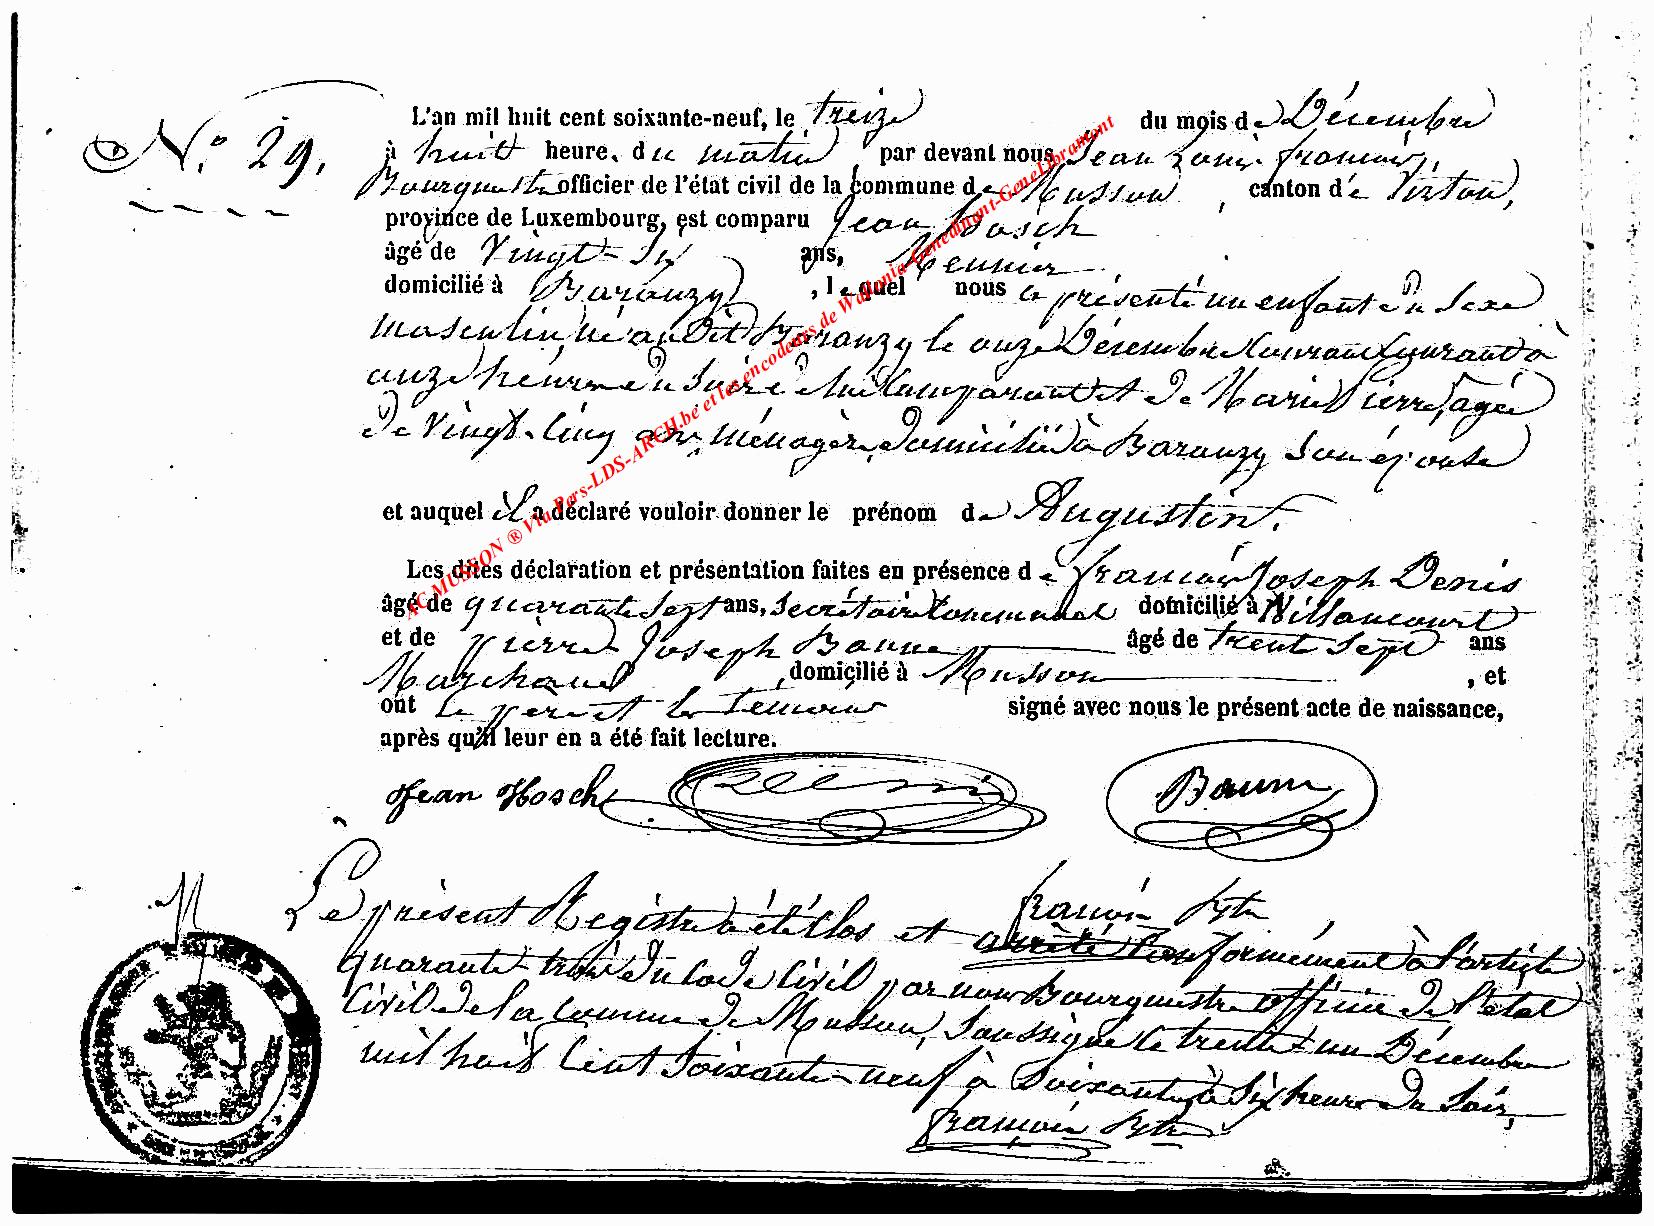 N.° 29.
L'an mil huit cent soixante-neuf, le treize du mois de Décembre
à huit heure. du matin par devant nous Jean Louis françois,
Bourgmestre officier de l'état civil de la commune de Musson, canton de Virton,
province de Luxembourg, est comparu Jean Hosch
âgé de Vingt-six ans, Meunier
domicilié à Baranzy, lequel nous a présenté un enfant du sexe
masculin, né au dit Baranzy le onze Décembre Courant Courant à
onze heures du soir de lui Comparant et de Marie Pierre, agée
de Vingt-Cinq ans ménagère, domiciliée à Baranzy son épouse
et auquel il a déclaré vouloir donner le prénom de Augustin.
Les dites déclaration et présentation faites en présence de françois Joseph Denis
âgé de quarante sept ans, secrétaire Communal domicilié à Willancourt
et de Pierre Joseph Baume âgé de trente sept ans
Marchand, domicilié à Musson, et
ont le père et les témoins signé avec nous le présent acte de naissance,
après qu'il leur en a été fait lecture.
Jean Hosch Denis Baume
françois Bgtre
Le présent Registre a été Clos et arrêté Conformément à l'article
quarante trois du Code Civil par nous Bourgmestre officier de l'état
Civil de la commune de Musson, soussigné le trente un Décembre
mil huit Cent soixante-neuf à six heures du soir,
françois Bgtre
AC MUSSON ® Via Pers-LDS-ARCH.be et les encodeurs de Wallonia-Genedinant-GeneLibramont